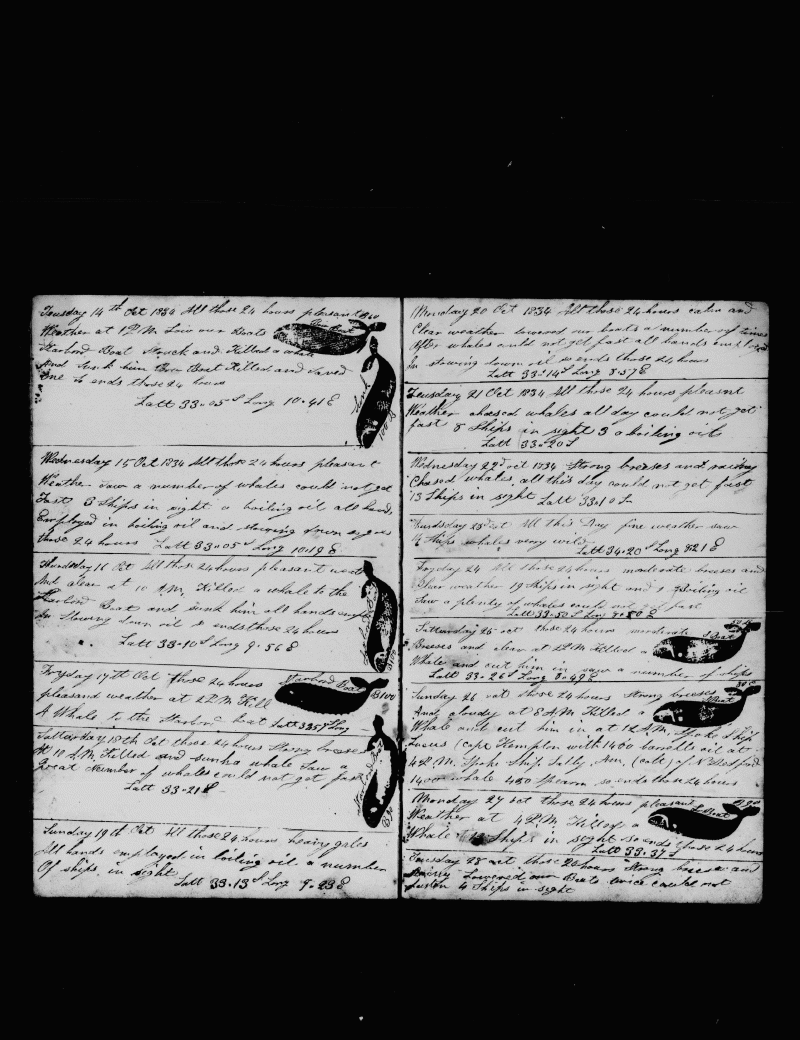 Teusday 14th Oct 1834 All those 24 hours pleasant
Weather at 1 P.M. Lowr our Boats
Larbord Boat Struck and Killed a whale
And Sunk him Bow Boat Killed and Saved
One so ends those 24 hours
Latt 33=05 S Long 10=41 E
Wednesday 15 Oct 1834 All those 24 hours pleasant
Weather Saw a number of whales could not get
Fast 8 Ships in sight a boiling oil all hands
Employed in boiling oil and stowing down
those 24 hours Latt 33=05 S Long 10=19 E
Thursday 16 Oct All those 24 hours pleasant
And Clear at 10 A.M. Killed a whale to the
Larbord Boat and sunk him all hands
In Stowing down oil so ends those 24 hours
Latt 33=10 S Long 9=56 E
Fryday 17th Oct those 24 hours
pleasand weather at 2 P.M. Kill
A Whale to the Starbord Boat Latt 33 57 Long
Starbord Boat
B 100
Satturday 18th Oct those 24 hours Strong breeses
At 10 A.M. Killed and sunk a whale Saw a
Great Number of whales could not get fast
Latt 33=21 S
Sunday 19th Oct All those 24 hours heavy gales
All hands employed in boiling oil a number
Of ships in sight
Latt 33=13 S Long 9=23 E
Monday 20 Oct 1834 All those 24 hours calm and
Clear weather lowered our boats a number of times
After whales could not get fast all hands employed
In stowing down oil so ends those 24 hours
Latt 33=14 S Long 8=57 E
Teusday 21 Oct 1834 All those 24 hours pleasant
Weather chaesed whales all day could not get
fast 8 Ships in sight 3 a boiling oil
Latt 33=20 S
Wednesday 22d oct 1834 Strong breeses and
Chased whales all this day could not get fast
13 Ships in sight Latt 33=10 S
23d oct All this Day fine weather saw
Ships whales very wild
Latt 34=20 S Long 8 21 E
Fryday 24 All those 24 hours moderate breeses and
Clear weather 19 Ships in sight and 2 Boiling oil
Saw a plenty of whales could not get fast
Latt 33=50 S Long 8=50 E
Satturday 25 oct those 24 hours moderate
Breeses and clear at 2 P.M. Killed a
Whale and cut him in saw a number of ships
Latt 33=26 S Long 8=49 E
Sunday 26 oct those 24 hours Strong breeses
And cloudy at 8 A.M. Killed a
Whale and cut him in at 12 A.M. Spoke Ship
(capt Hampton with 1400 barrells oil at
4 P.M. Spoke Ship Sally Ann (Cole) of N Bedford
1400 whale 450 Sperm so ends those 24 hours
Monday 27 oct those 24 hours pleasand
Weather at 4 P.M. Killed a
Whale Ships in sight so ends those 24 hours
Latt 33=37 S
Teusday 28 oct those 24 hours Strong breeses and
Lowered our Boats twice could not
4 Ships in sight